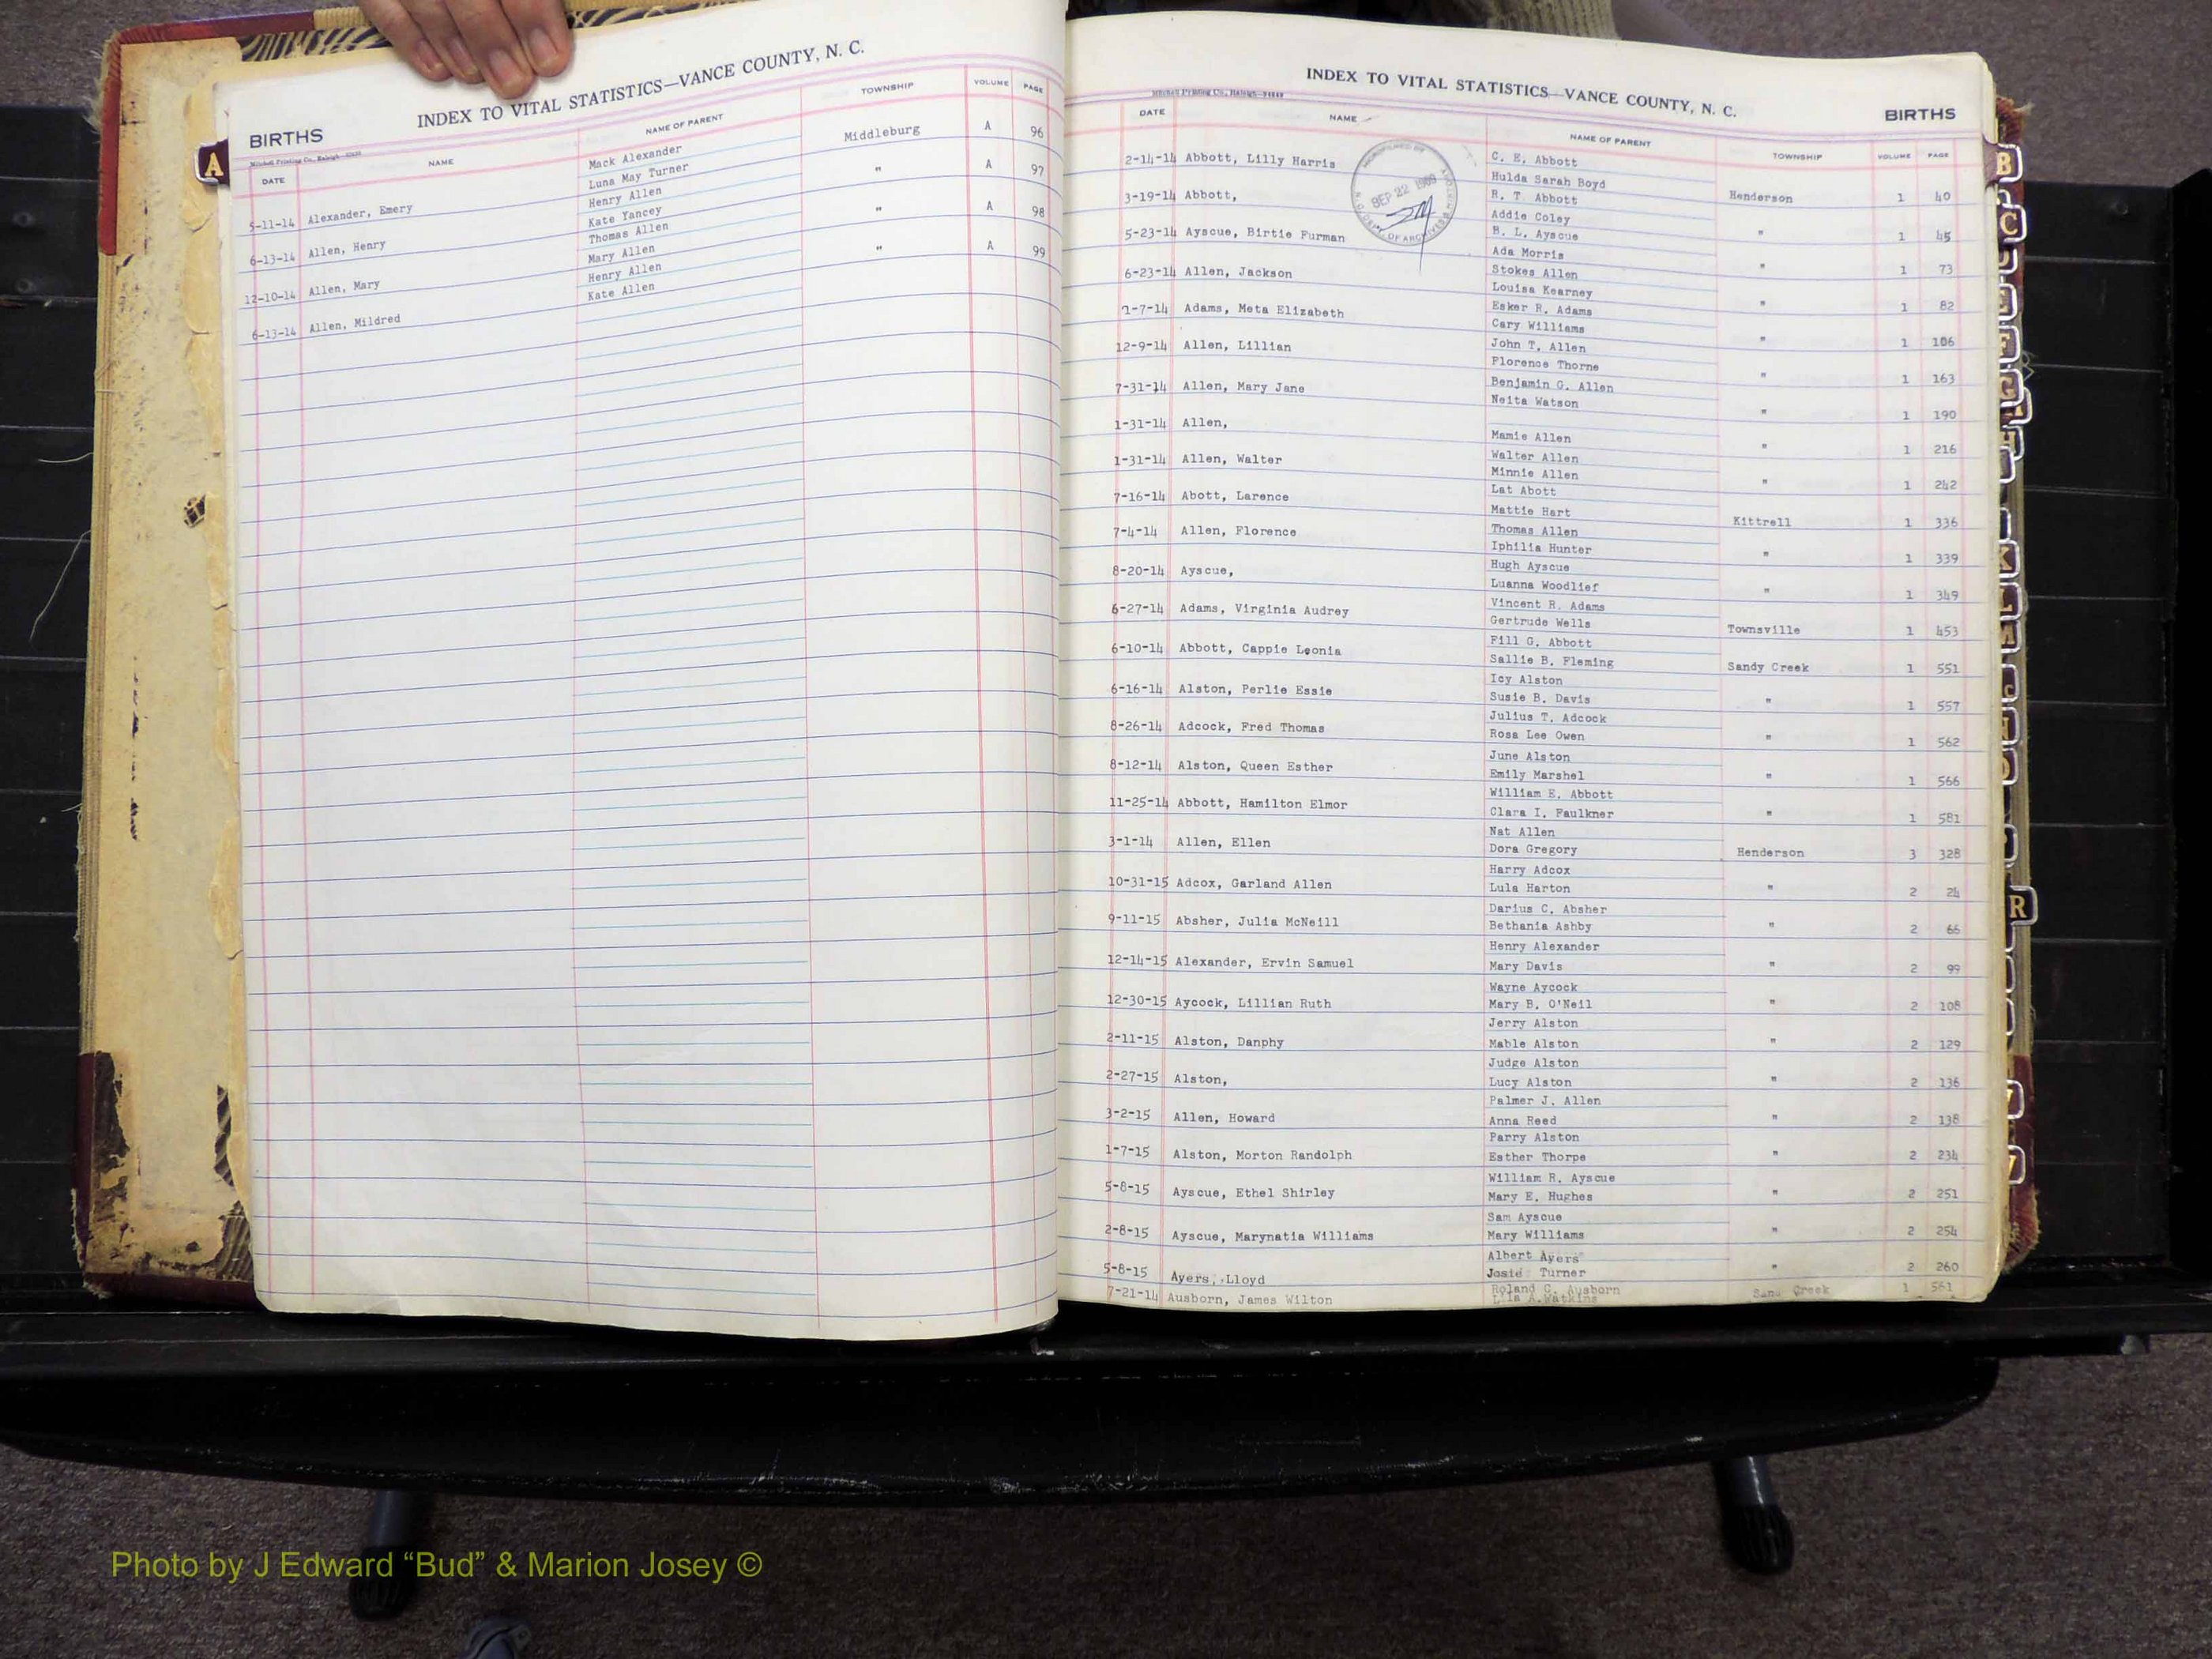 INDEX TO VITAL STATISTICS—VANCE COUNTY, N. C.
BIRTHS
DATE NAME NAME OF PARENT TOWNSHIP VOLUME PAGE
A
5-11-14 Alexander, Emery Mack Alexander Middleburg A 96
Luna May Turner
6-13-14 Allen, Henry Henry Allen " A 97
Kate Yancey
12-10-14 Allen, Mary Thomas Allen " A 98
Mary Allen
6-13-14 Allen, Mildred Henry Allen " A 99
Kate Allen
INDEX TO VITAL STATISTICS—VANCE COUNTY, N. C.
BIRTHS
Mitchell Printing Co., Raleigh
DATE NAME NAME OF PARENT TOWNSHIP VOLUME PAGE
MICROFILMED BY
SEP 22 1969
2-14-14 Abbott, Lilly Harris C. E. Abbott
Hulda Sarah Boyd Henderson 1 40
3-19-14 Abbott, R. T Abbott
Addie Coley " 1 45
5-23-14 Ayscue, Birtie Furman B. L. Ayscue
Ada Morris " 1 73
6-23-14 Allen, Jackson Stokes Allen
Louisa Kearney " 1 82
Adams, Meta Elizabeth Esker R. Adams
Cary Williams " 1 106
12-9-14 Allen, Lillian John T. Allen
Florence Thorne " 1 163
7-31-14 Allen, Mary Jane Benjamin G. Allen
Neita Watson " 1 190
1-31-14 Allen,
Mamie Allen " 1 216
1-31-14 Allen, Walter Walter Allen
Minnie Allen " 1 242
7-16-14 Abott, Larence Lat Abott
Mattie Hart Kittrell 1 336
7-4-14 Allen, Florence Thomas Allen
Iphilia Hunter " 1 339
8-20-14 Ayscue, Hugh Ayscue
Luanna Woodlief " 1 349
6-27-14 Adams, Virginia Audrey Vincent R. Adams
Gertrude Wells Townsville 1 453
6-10-14 Abbott, Cappie Leonia Fill G. Abbott
Sallie B. Fleming Sandy Creek 1 551
6-16-14 Alston, Perlie Essie Icy Alston
Susie B. Davis " 1 557
8-26-14 Adcock, Fred Thomas Julius T. Adcock
Rosa Lee Owen " 1 562
8-12-14 Alston, Queen Esther June Alston
Emily Marshel " 1 566
11-25-14 Abbott, Hamilton Elmor William E. Abbott
Clara I. Faulkner " 1 581
3-1-14 Allen, Ellen Nat Allen
Dora Gregory Henderson 3 328
10-31-15 Adcox, Garland Allen Harry Adcox
Lula Harton " 2 24
9-11-15 Absher, Julia McNeill Darius C. Absher
Bethania Ashby " 2 66
12-14-15 Alexander, Ervin Samuel Henry Alexander
Mary Davis " 2 99
12-30-15 Aycock, Lillian Ruth Wayne Aycock
Mary B. O'Neil " 2 108
2-11-15 Alston, Danphy Jerry Alston
Mable Alston " 2 129
2-27-15 Alston, Judge Alston
Lucy Alston " 2 136
3-2-15 Allen, Howard Palmer J. Allen
Anna Reed " 2 138
1-7-15 Alston, Morton Randolph Parry Alston
Esther Thorpe " 2 234
5-8-15 Ayscue, Ethel Shirley William R. Ayscue
Mary E. Hughes " 2 251
2-8-15 Ayscue, Marynatia Williams Sam Ayscue
Mary Williams " 2 254
5-8-15 Ayers, Lloyd Albert Ayers
Josie Turner " 2 260
7-21-14 Ausborn, James Wilton Roland C. Ausborn Creek 1 561
A. Watkins
B
C
F
G
H
K
L
M
R
Photo by J Edward “Bud” & Marion Josey ©